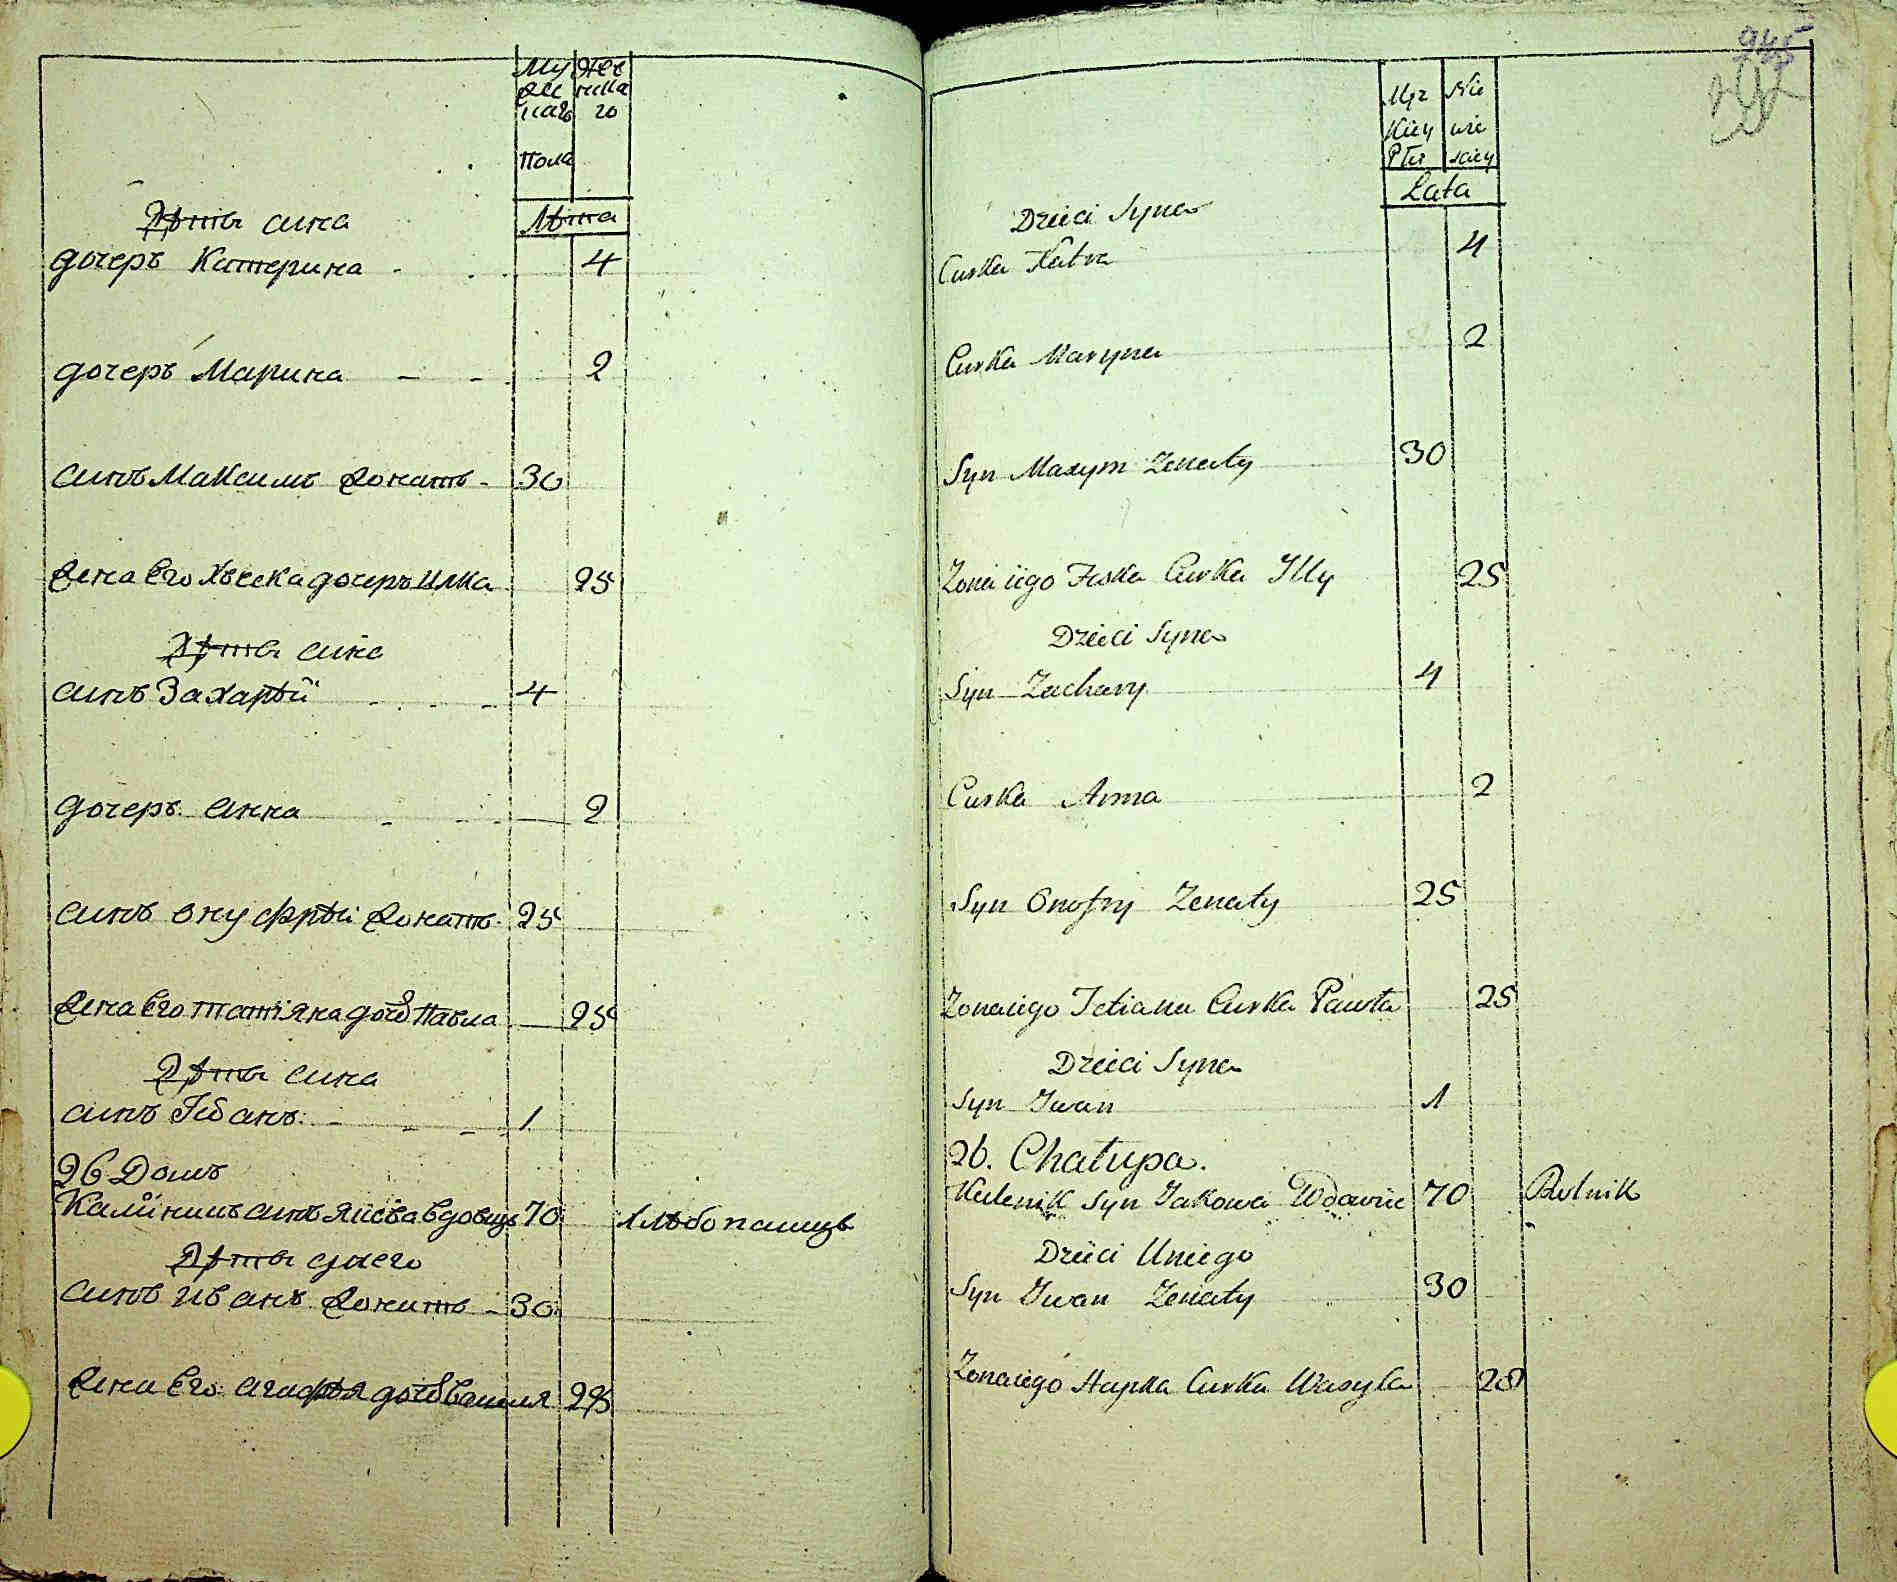 Му Же
же нска
наго го
Пола
Лѣта
Дѣти сина
дочеръ Катерина 4
дочеръ Марина 2
синъ Максимъ жонатъ 30
жена Его Хвеска дочеръ Илка 25
Дѣти сина
синъ Захарѣй 4
дочеръ Анна 2
синъ Онуфрѣй жонатъ 25
жена Его татіяна доч Павла 25
Дѣти сина
синъ Іванъ 1
26 Домъ
синъ вдовецъ 70 Хлѣбопашецъ
Дѣти унего
синъ Иванъ жонатъ 30
жена Его Агафѣя доч Василя 28
945
Męz Nie
Kiey wie
Płci skiey
Lata
Dzieci Syna
Curka Katra 4
Curka Maryna 2
Syn Maxym Zenaty 30
Zona iego Feska Curka Illy 25
Dzieci Syna
Syn Zachary 4
Curka Anna 2
Syn Onofry Zenaty 25
Zona iego Tetiana Curka Pawła 25
Dzieci Syna
Syn Iwan 1
26. Chałupa.
Kalenik Syn Jakowa Wdowiec 70 Rolnik
Dzieci Uniego
Syn Iwan Zenaty 30
Zona iego Hapka Curka Wasyla 28